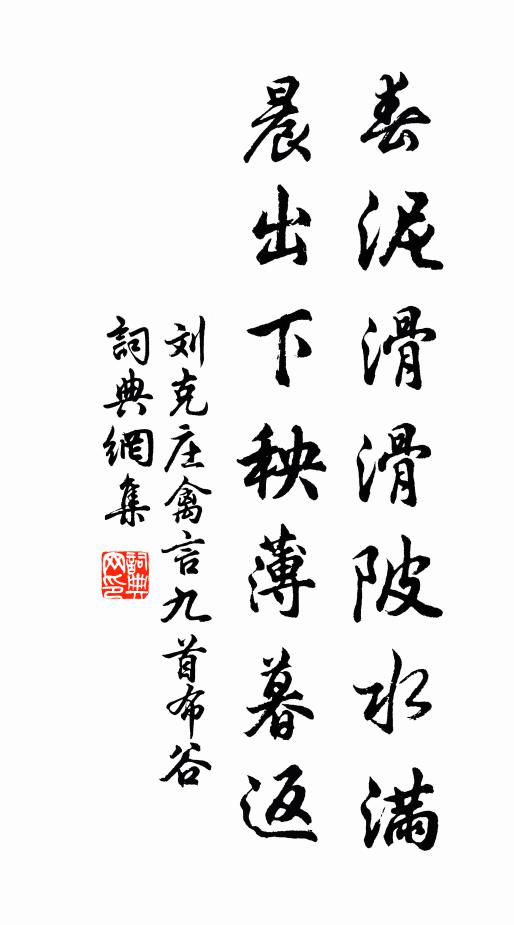 春泥滑滑陂水满
晨出下秧薄暮返
刘克庄禽言九首布谷
詞典網集
詞典網印